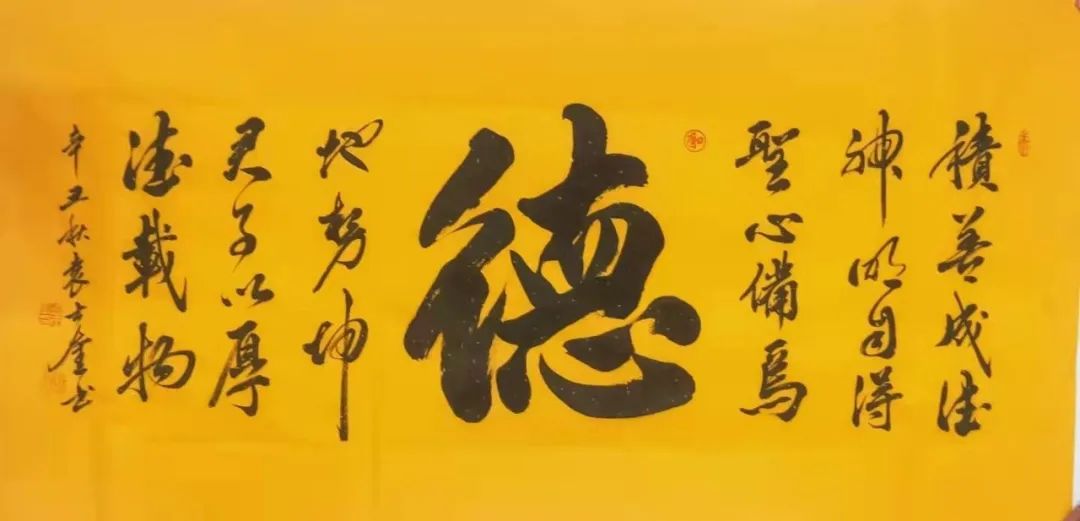 積善成德
神明自得
聖心備焉
德
地势坤
君子以厚
德載物
辛丑秋袁士金书